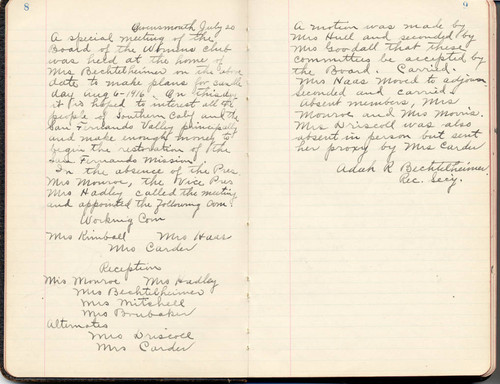 8
Owensmouth July 20
A special meeting of the
Board of the Womens club
was held at the home of
Mrs Bechtelheimer on the above
date to make plans for candle
day Aug 6-1916. On this day
it is hoped to interest all the
people of Southern Caly and the
San Fernando Valley principally
and make enough money to
begin the restoration of the
San Fernando Mission.
In the absence of the Pres
Mrs Monroe, the Vice Pres
Mrs Hadley called the meeting
and appointed the following Com
Working Com
Mrs Kimball Mrs Haas
Mrs Carder
Reception
Mrs Monroe Mrs Hadley
Mrs Bechtelheimer
Mrs Mitchell
Mrs Brubaker
Alternates
Mrs Driscoll
Mrs Carder
9
A motion was made by
Mrs Hull and seconded by
Mrs Goodall that these
committees be accepted by
the Board. Carried.
Mrs Haas moved to adjourn
seconded and carried.
Absent members, Mrs
Monroe and Mrs Morris.
Mrs Driscoll was also
absent in person but sent
her proxy by Mrs Carder
Adah R Bechtelheimer
Rec. Secy.